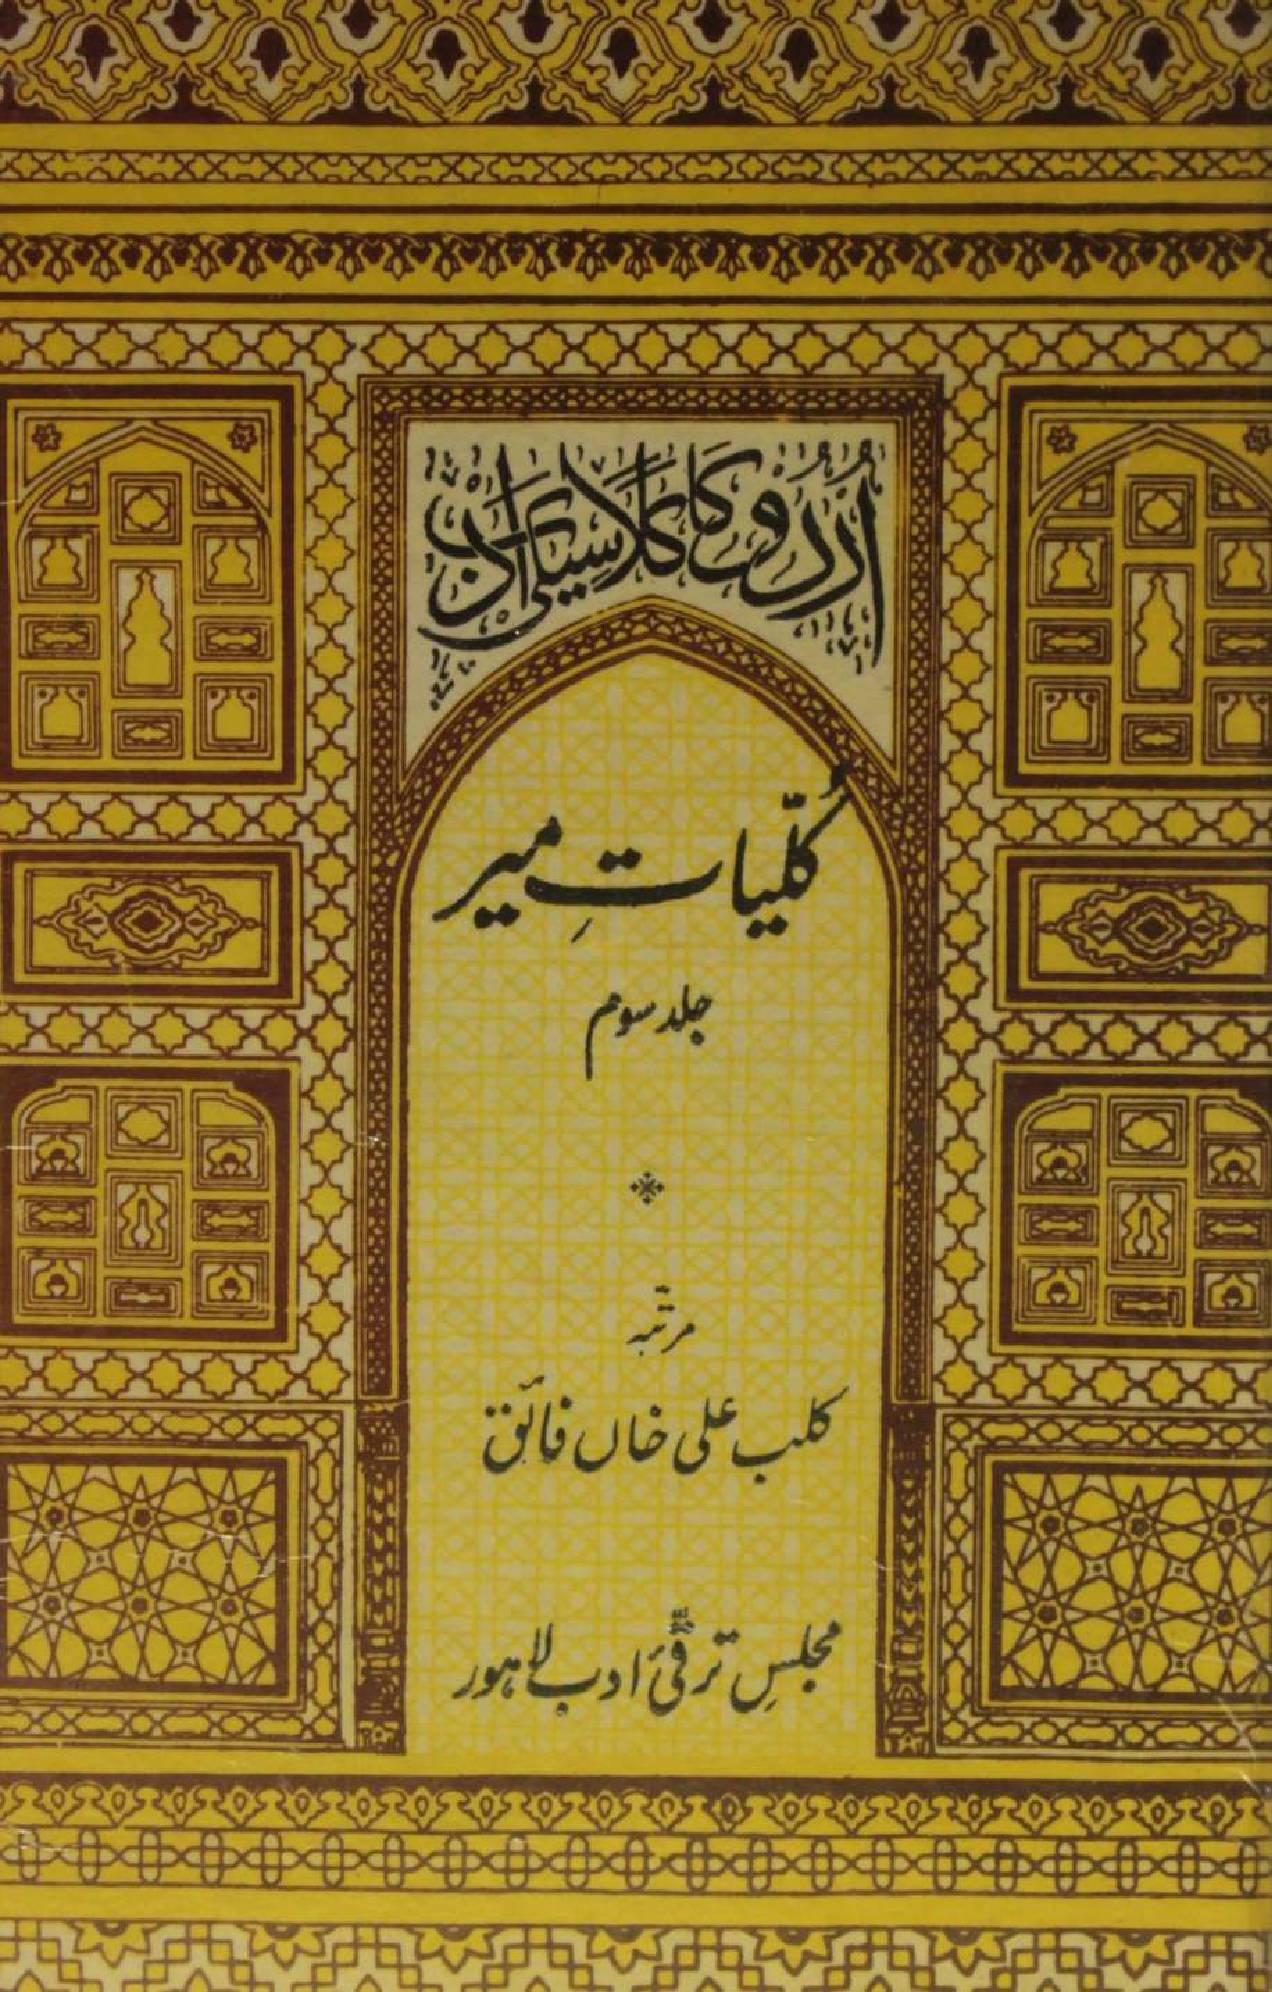 اُردُو کا کلاسیکی ادب
کُلّیاتِ میر
جلد سوم
مرتّبہ
کلب علی خاں فائق
مجلسِ ترقّئ ادب لاہور